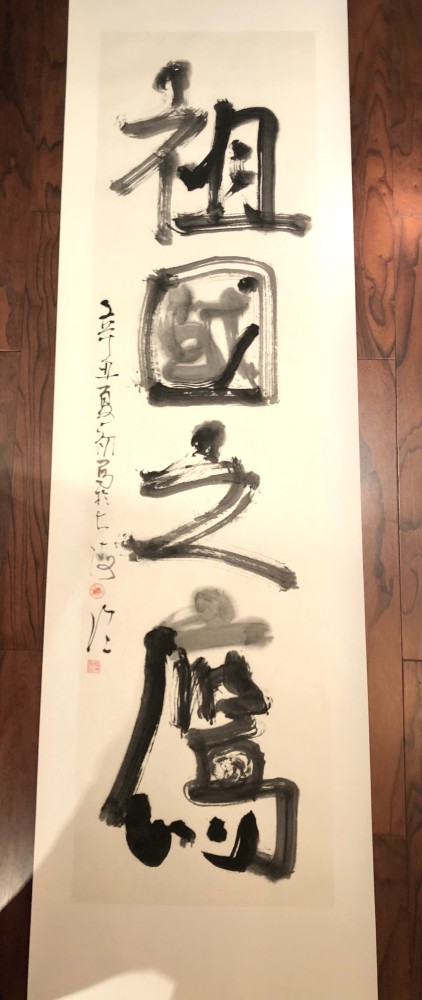 祖國之鷹
辛丑夏初寫於上海